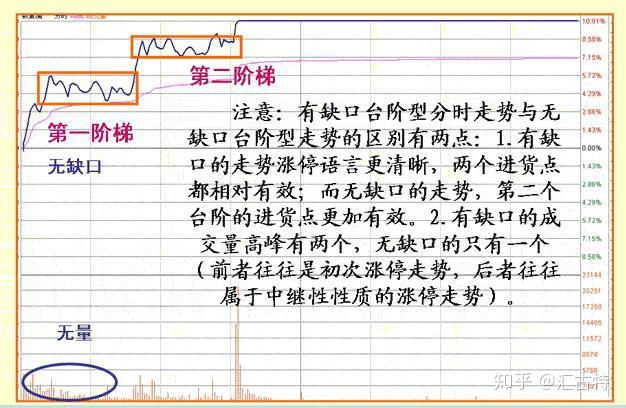 10.01%
8.58%
7.15%
第二阶梯
5.72%
4.29%
注意：有缺口台阶型分时走势与无
2.86%
第一阶梯
缺口台阶型走势的区别有两点：1.有缺
1.43%
无缺口
口的走势涨停语言更清晰，两个进货点
0.00%
都相对有效；而无缺口的走势，第二个
1.43%
2.86%
台阶的进货点更加有效。2.有缺口的成
4.29%
5.72%
交量高峰有两个，无缺口的只有一个
7.15%
（前者往往是初次涨停走势，后者往往
8.58%
23144
属于中继性性质的涨停走势）。
20251
17358
无量
14465
11572
8676
5768
知乎 @汇古特